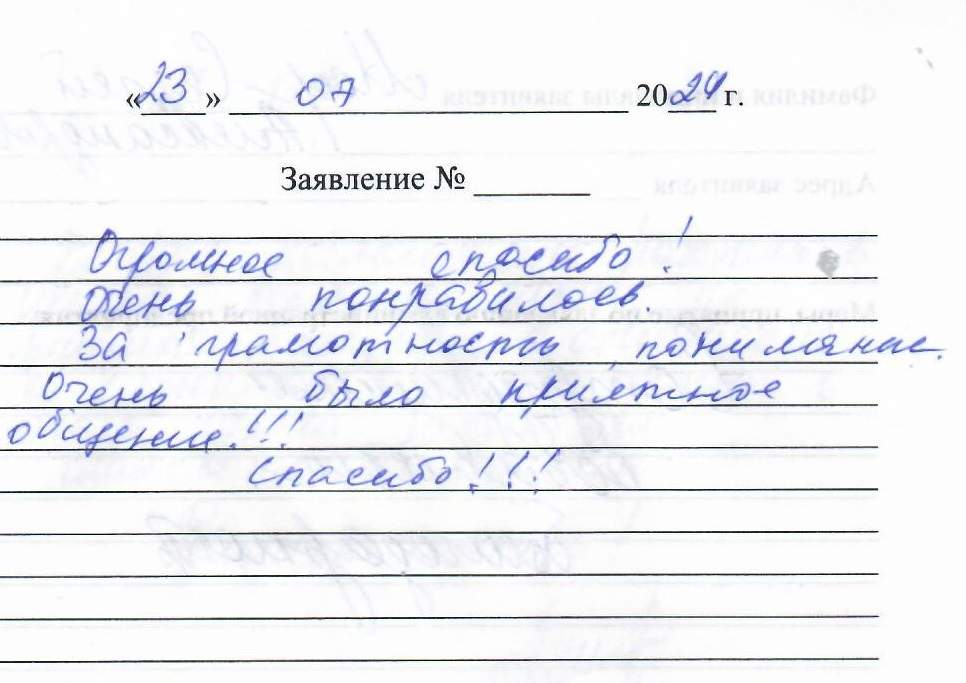 «23» 07 2024 г.
Заявление №
Огромное спасибо!
Очень понравилось.
За грамотность, понимание.
Очень было приятное
общение.!!!
Спасибо!!!